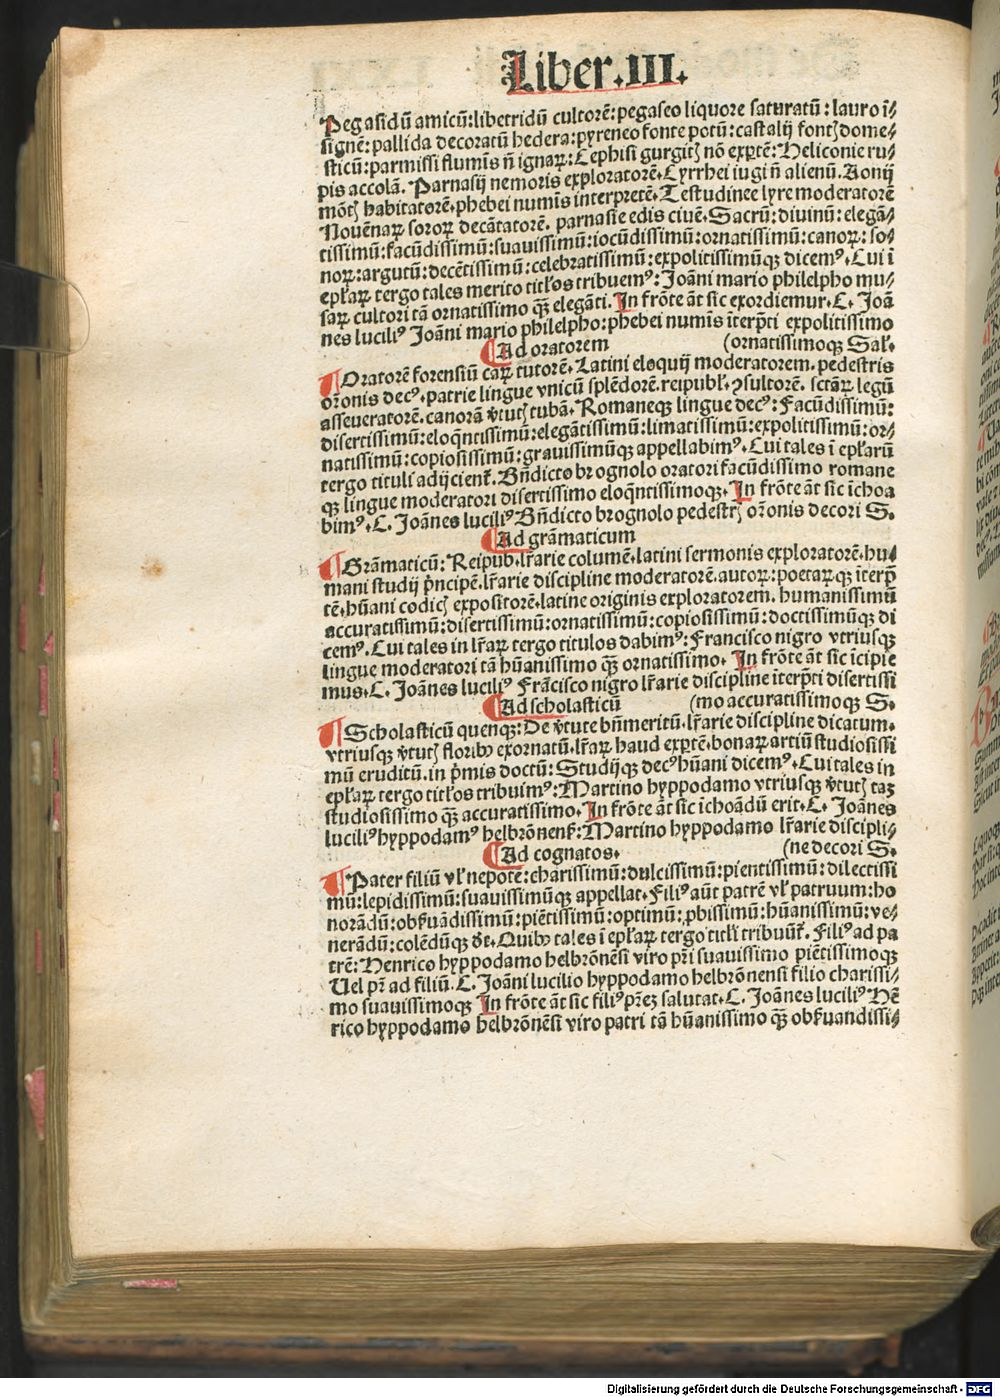 Liber.III.
Pegasidũ amicũ:libetridũ cultorẽ:pegaseo liquore saturatũ:lauro ĩ⸗
signẽ:pallida decoratũ hedera:pyreneo fonte potũ:castalij fontꝭ dome⸗
sticũ:parmissi flumĩs ñ ignaꝝ:Cephisi gurgitꝭ nõ exꝑtẽ:Heliconie ru⸗
pis accolã. Parnasij nemoris exploratorẽ.Cyrrhei iugi ñ alienũ.Aonij
mõtꝭ habitatorẽ.phebei numĩs interpretẽ.Testudinee lyre moderatorẽ
Nouẽnaꝝ soroꝝ decãtatorẽ. parnasie edis ciuẽ.Sacrũ:diuinũ:elegã⸗
tissimũ:facũdissimũ:suauissimũ:iocũdissimũ:ornatissimũ:canoꝝ:so⸗
noꝝ:argutũ:decẽtissimũ:celebratissimũ:expolitissimũqꝫ dicemꝰ.Cui ĩ
epłaꝝ tergo tales merito titłos tribuemꝰ:Joãni mario philelpho mu⸗
saꝝ cultori tã ornatissimo qꝫ̃ elegãti.In frõte ãt sic exordiemur.C. Joã
nes luciliꝰ Joãni mario philelpho:phebei numĩs ĩterp̃ti expolitissimo
Ad oratorem (ornatissimoqꝫ Sał.
Oratorẽ forensiũ caꝝ tutorẽ.Latini eloquij moderatorem.pedestris
or̃onis decꝰ.patrie lingue vnicũ splẽdorẽ.reipubł.ꝯsultorẽ. sctãꝝ legũ
asseueratorẽ.canorã v̓tutꝭ tubã.Romaneqꝫ lingue decꝰ:Facũdissimũ:
disertissimũ:eloq̃ntissimũ:elegãtissimũ:limatissimũ:expolitissimũ:or⸗
natissimũ:copiosissimũ:grauissimũqꝫ appellabimꝰ.Cui tales ĩ epłarũ
tergo tituli adijcient̃.Bñdicto brognolo oratori facũdissimo romane
qꝫ lingue moderatori disertissimo eloq̃ntissimoqꝫ.In frõte ãt sic ĩchoa
bimꝰ.C. Joãnes luciliꝰ Bñdicto brognolo pedestrꝭ or̃onis decori S.
Ad grãmaticum
Grãmaticũ:Reipub.lr̃arie columẽ.latini sermonis exploratorẽ.hu⸗
mani studij p̓ncipẽ.lr̃arie discipline moderatorẽ.autoꝝ:poetaꝝqꝫ ĩterp̃
tẽ.hũani codicꝭ expositorẽ.latine originis exploratorem.humanissimũ
accuratissimũ:disertissimũ:ornatissimũ:copiosissimũ:doctissimũqꝫ di
cemꝰ.Cui tales in lr̃aꝝ tergo titulos dabimꝰ:Francisco nigro vtriusqꝫ
lingue moderatori tã hũanissimo qꝫ̃ ornatissimo. In frõte ãt sic ĩcipie
mus.C. Joãnes luciliꝰ Frãcisco nigro lr̃arie discipline ĩterp̃ti disertissi
Ad scholasticũ (mo accuratissimoqꝫ S.
Scholasticũ quenqꝫ:De v̓tute bñmeritũ.lr̃arie discipline dicatum.
vtriusqꝫ v̓tutꝭ floribꝰ exornatũ.lr̃aꝝ haud exꝑtẽ.bonaꝝ artiũ studiosissi
mũ eruditũ.in p̓mis doctũ:Studijqꝫ decꝰ hũani dicemꝰ.Cui tales in
epłaꝝ tergo titłos tribuimꝰ:Martino hyppodamo vtriusqꝫ v̓tutꝭ taꝫ
studiosissimo qꝫ̃ accuratissimo.In frõte ãt sic ĩchoãdũ erit.C. Joãnes
luciliꝰ hyppodamꝰ helbrõnenś:Martino hyppodamo lr̃arie discipli⸗
Ad cognatos. (ne decori S.
Pater filiũ vł nepotẽ:charissimũ:dulcissimũ:pientissimũ:dilectissi
mũ:lepidissimũ:suauissimũqꝫ appellat.Filiꝰ aũt patrẽ vł patruum:ho
norãdũ:obśuãdissimũ:piẽtissimũ:optimũ:ꝓbissimũ:hũanissimũ:ve⸗
nerãdũ:colẽdũqꝫ d̓t.Quibꝰ tales ĩ epłaꝝ tergo titłi tribuũt̃. Filiꝰ ad pa
trẽ:Henrico hyppodamo helbrõnẽsi viro pr̃i suauissimo piẽtissimoqꝫ
Uel pr̃ ad filiũ.C. Joãni lucilio hyppodamo helbrõnensi filio charissi⸗
mo suauissimoqꝫ In frõte ãt sic filiꝰ pr̃eꝫ salutat.C. Joãnes luciliꝰ Hẽ
rico hyppodamo helbrõnẽsi viro patri tã hũanissimo qꝫ̃ obśuandissi⸗
Digitalisierung gefördert durch die Deutsche Forschungsgemeinschaft - DFG